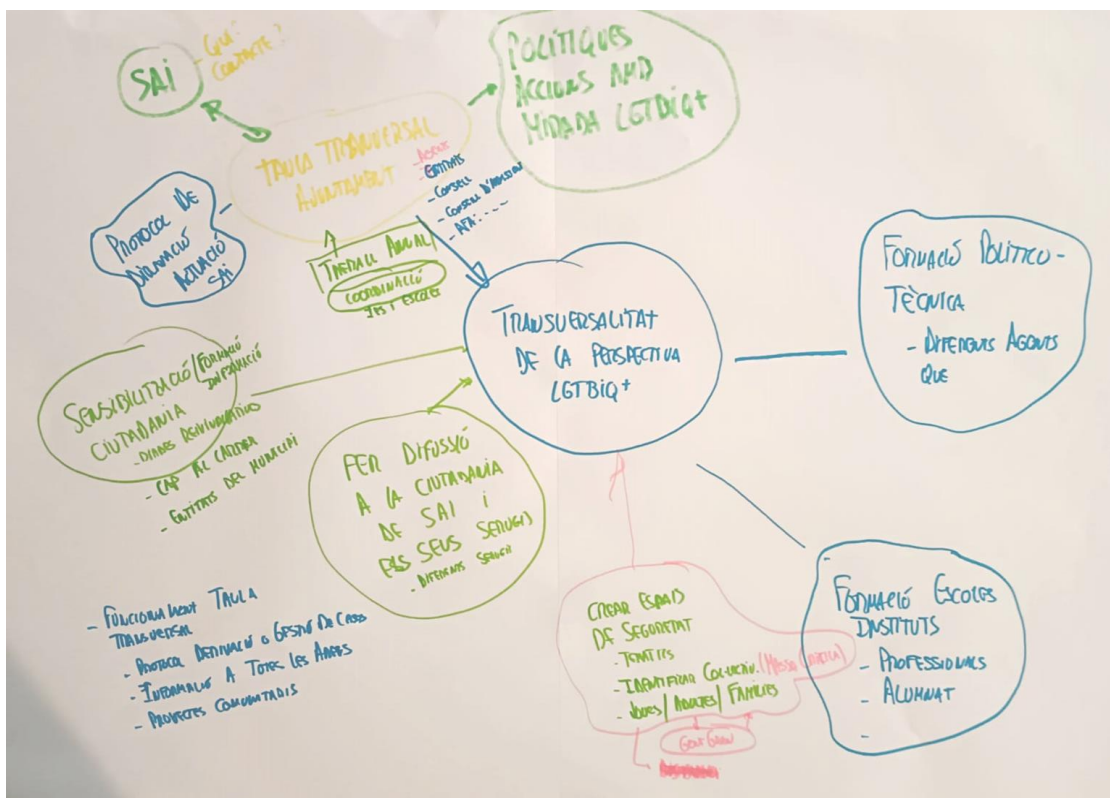 SAI
- QUI?
CONTACTE?
POLÍTIQUES
ACCIONS AMB
MIRADA LGTBIQ+
TAULA TRANSVERSAL
AJUNTAMENT
- ENTITATS
- CONSELL
- CONSELL D'
- AFA: - - - -
PROTOCOL DE
DERIVACIÓ
ACTUACIÓ
SAI
TREBALL ANUAL
COORDINACIÓ
IES I ESCOLES
TRANSVERSALITAT
DE LA PERSPECTIVA
LGTBIQ+
FORMACIÓ POLÍTICO-
TÈCNICA
- DIFERENTS AGENTS
QUE
SENSIBILITZACIÓ/FORMACIÓ
INFORMACIÓ
CIUTADANIA
- DIADES REIVINDICATIVES
- CAP AL CARRER
- ENTITATS DEL MUNICIPI
FER DIFUSSIÓ
A LA CIUTADANIA
DE SAI I
ELS SEUS SERVEIS
- DIFERENTS SERVEIS
- FUNCIONAMENT TAULA
TRANSVERSAL
- PROTOCOL DERIVACIÓ O GESTIÓ DE CASOS
- INFORMACIÓ A TOTES LES ÀREES
- PROJECTES COMUNITARIS
CREAR ESPAIS
DE SEGURETAT
- TEMÀTICS
- IDENTIFICAR COL·LECTIU. (MASSA CRÍTICA)
- JOVES / ADULTES / FAMÍLIES
GENT GRAN
FORMACIÓ ESCOLES
INSTITUTS
- PROFESSIONALS
- ALUMNAT
-